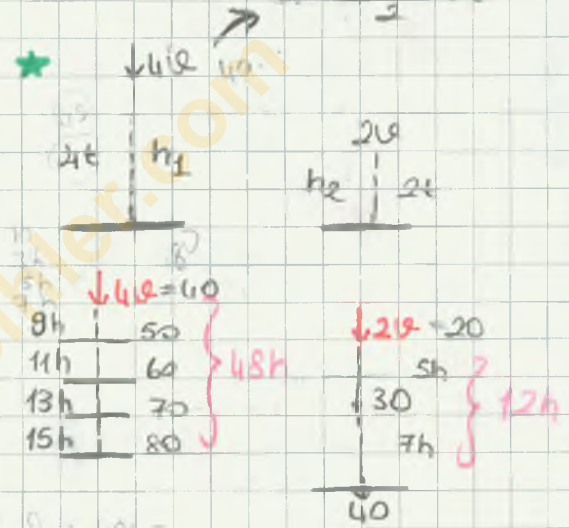 4ϑ
4t h₁
2ϑ
h₂ 2t
4ϑ=40
9h 50
11h 60
13h 70
15h 80
48h
2ϑ=20
5h
30
7h
40
12h